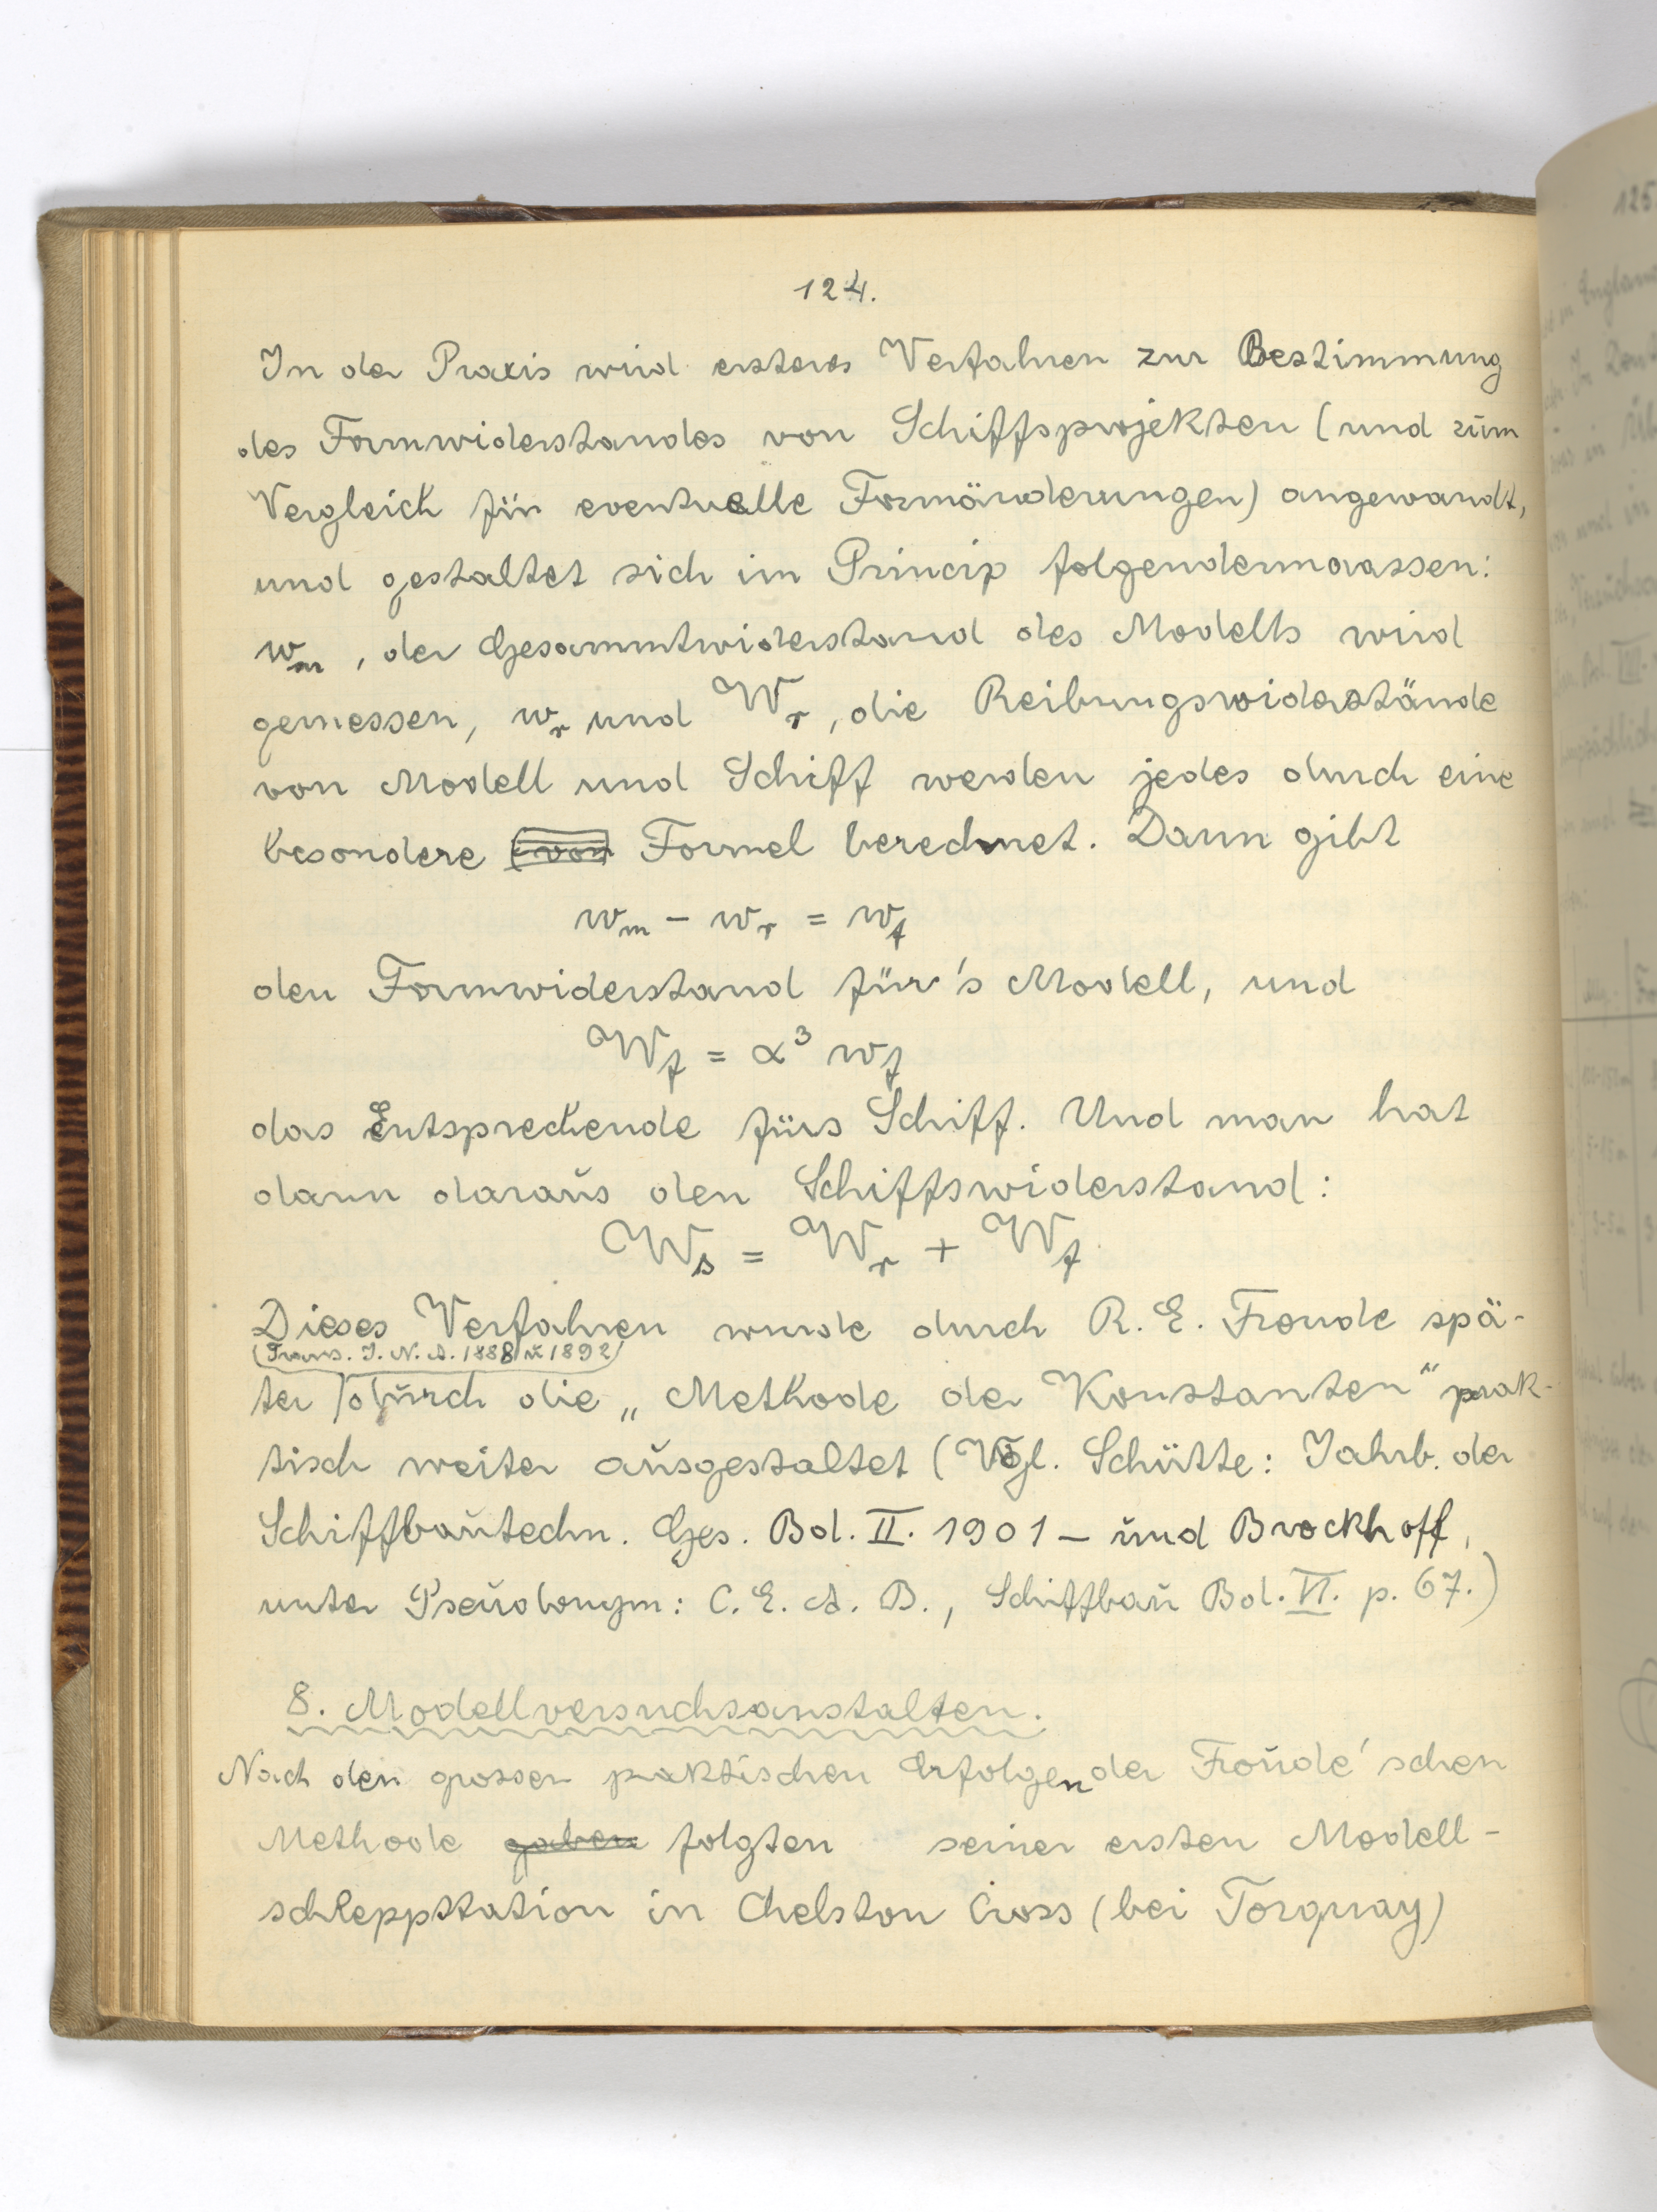 124.
In der Praxis wird ersteres Verfahren zur Bestimmung
des Formwiderstandes von Schiffsprojekten (und zum
Vergleich für eventuelle Formänderungen) angewandt,
und gestaltet sich im Princip folgendermaassen:
w_m, der Gesammtwiderstand des Modells wird
gemessen, w_r und W_r, die Reibungswiderstände
von Modell und Schiff werden jedes durch eine
besondere (von Formel berechnet. Dann gibt
w_m - w_r = w_f
den Formwiderstand für's Modell, und
W_f = α³ w_f
das Entsprechende fürs Schiff. Und man hat
dann daraus den Schiffswiderstand:
W_s = W_r + W_f
Dieses Verfahren wurde durch R. E. Froude spä-
(Trans. I. N. A. 1888 u 1892)
ter durch die „Methode der Konstanten" prak-
tisch weiter ausgestaltet (Vgl. Schütte: Jahrb. der
Schiffbautechn. Ges. Bd. II. 1901 - und Brockhoff,
unter Pseudonym: C. E. A. B., Schiffbau Bd. VI. p. 67.)
8. Modellversuchsanstalten.
Nach den grossen praktischen Erfolgen der Froude'schen
Methode gaben folgten seiner ersten Modell-
schleppstation in Chelston Cross (bei Torquay)